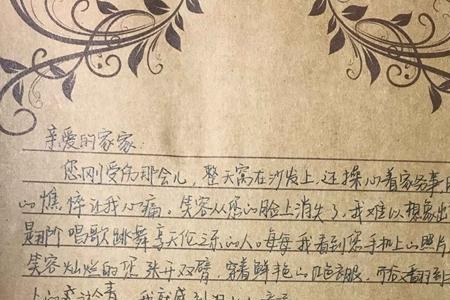 亲爱的家家:
您刚受伤那会儿,整天窝在沙发上,还操心着家务事
的憔悴让我心痛。笑容从您的脸上消失了,我难以想象出
是那个唱歌跳舞享天伦之乐的人。每每我看到您手机上的照片
笑容灿烂的您张开双臂,穿着鲜艳的